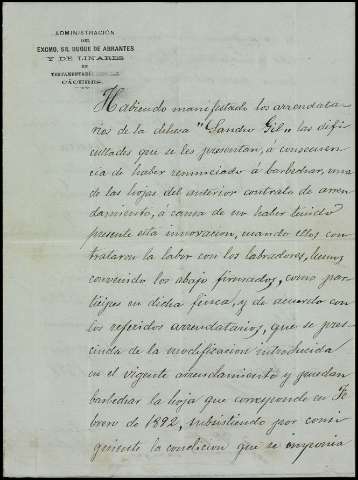 ADMINISTRACIÓN
DEL
EXCMO. SR. DUQUE DE ABRANTES
Y DE LINARES
EN
CÁCERES.
Habiendo manifestado los arrendata-
rios de la dehesa "Sancho Gil" las difi-
cultades que se les presentan, á consecuen-
cia de haber renunciado á barbechar, una
de las hojas del anterior contrato de arren-
damiento, á causa de no haber tenido
presente esta innovacion, cuando ellos con-
trataron la labor con los labradores, hemos
convenido los abajo firmados, como par-
tícipes en dicha finca, y de acuerdo con
los referidos arrendatarios, que se pres-
cinda de la modificacion introducida
en el vigente arrendamiento y puedan
barbechar la hoja que corresponde en Fe-
brero de 1892, subsistiendo por consi-
guiente la condicion que se imponia